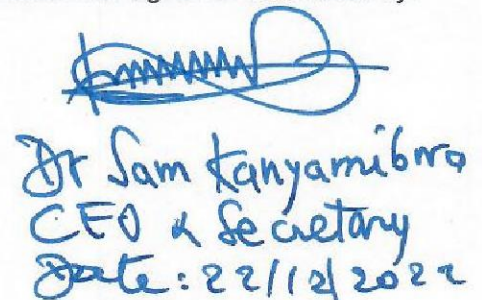 Dr Sam Kanyamibwa
CEO & Secretary
Date: 22/12/2022